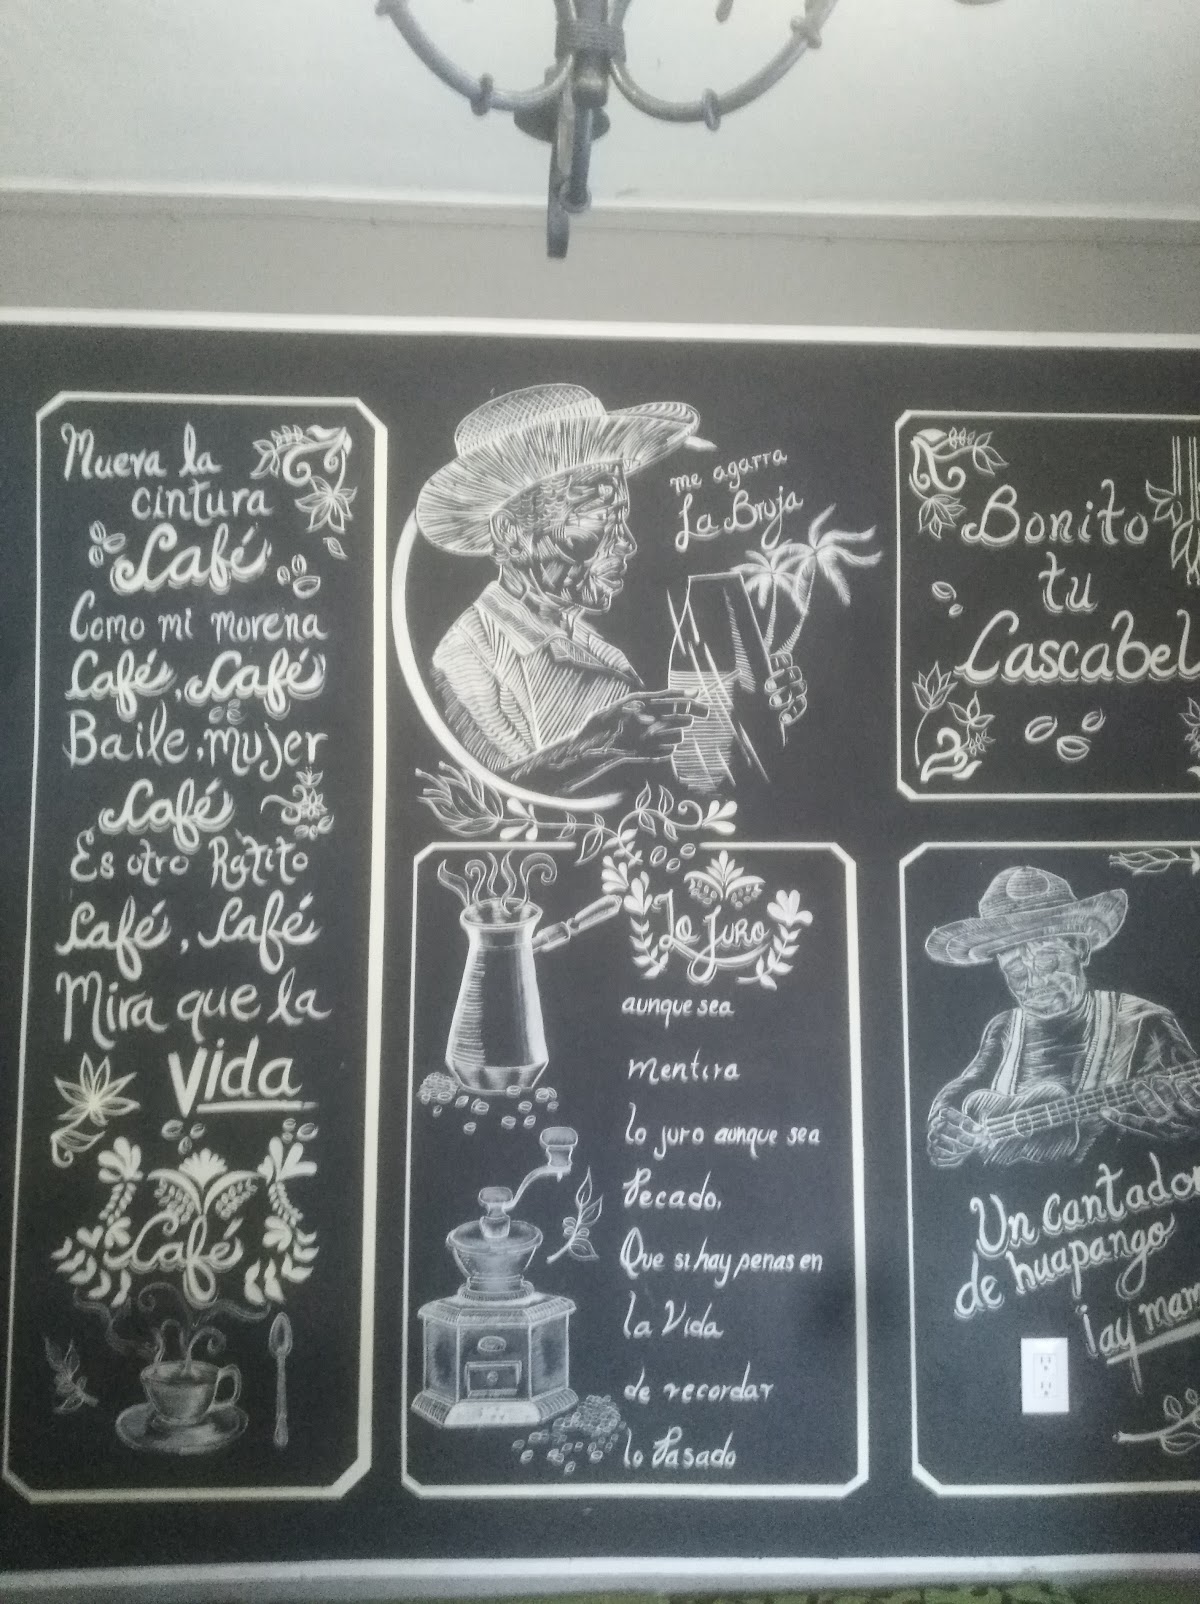 Mueva la
cintura
Café
Como mi morena
Café, Café
Baile, mujer
Café
Es otro Ratito
Café, Café
Mira que la
Vida
Café
me agarra
La Bruja
Lo Juro
aunque sea
mentira
lo juro aunque sea
Pecado,
Que si hay penas en
la Vida
de recordar
lo Pasado
Bonito
tu
Cascabel
Un Cantador
de huapango
¡ay mam